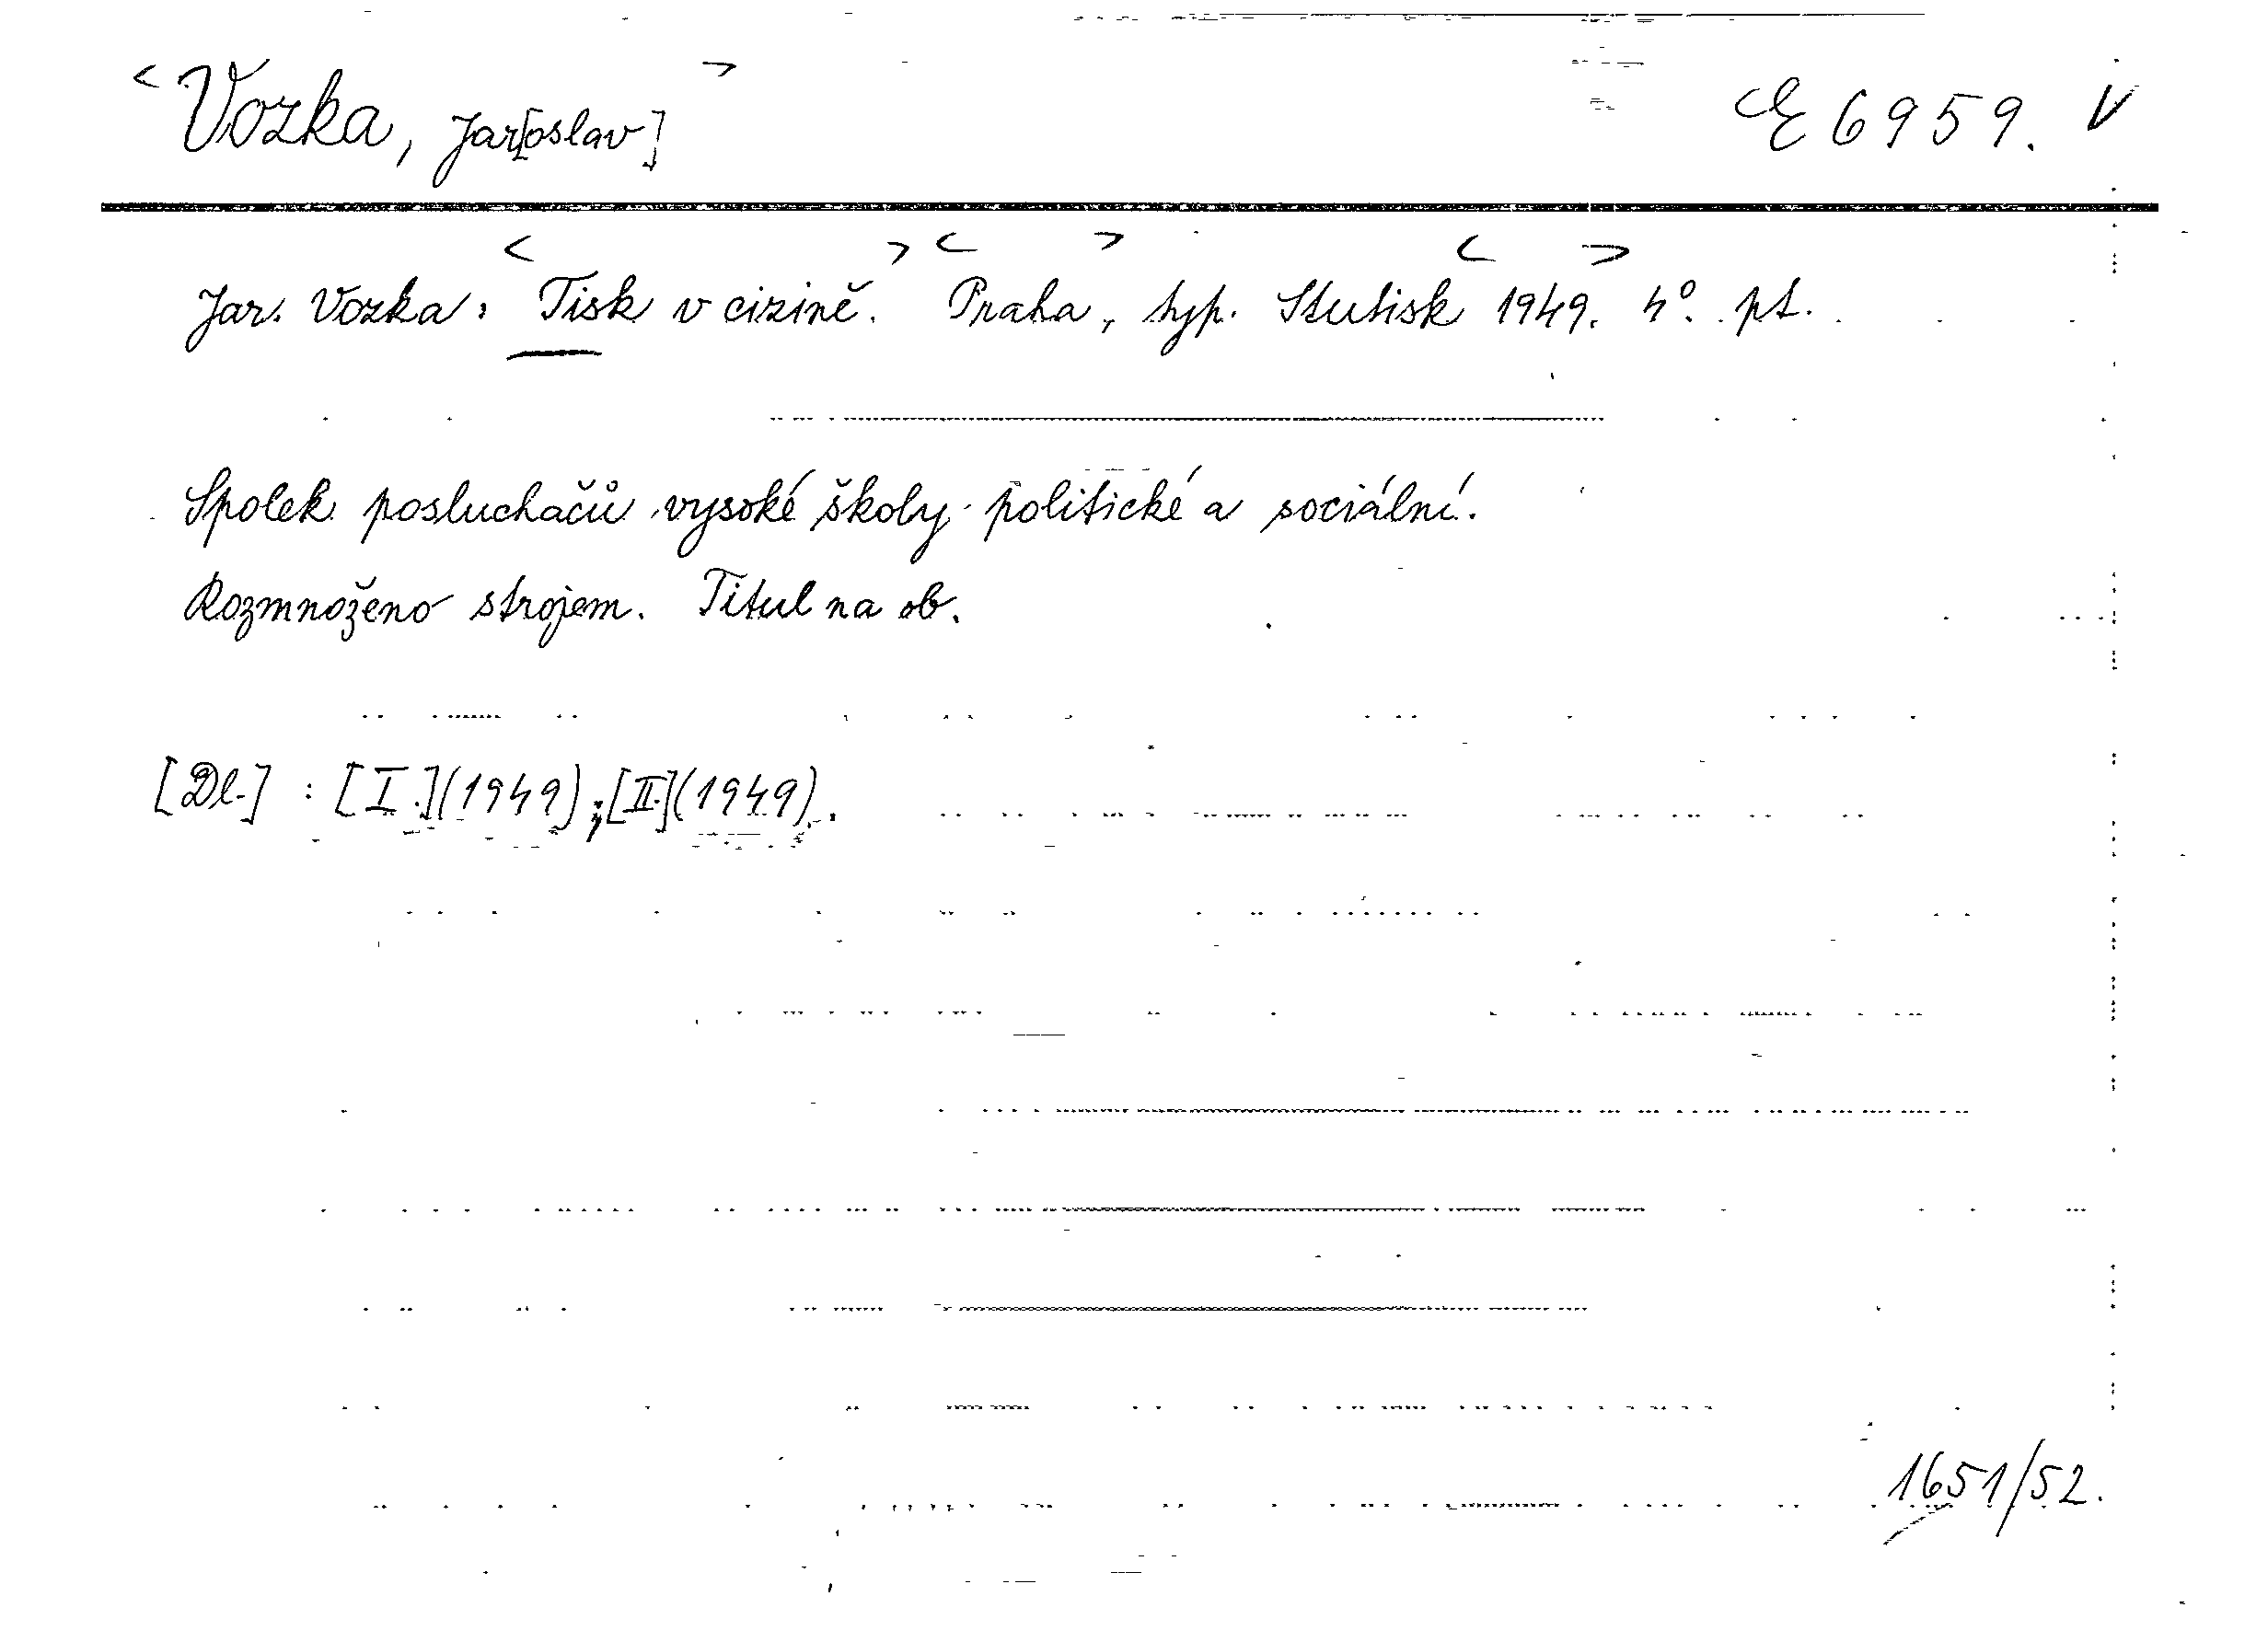 <Vozka, Jar[oslav]> E 6959. V
Jar. Vozka: <Tisk v cizině.> <Praha>, typ. Stutisk <1949>. 4°. pt.
Spolek posluchačů vysoké školy politické a sociální.
Rozmnoženo strojem. Titul na ob.
[Dl.] : [I.](1949);[II.](1949).
1651/52.